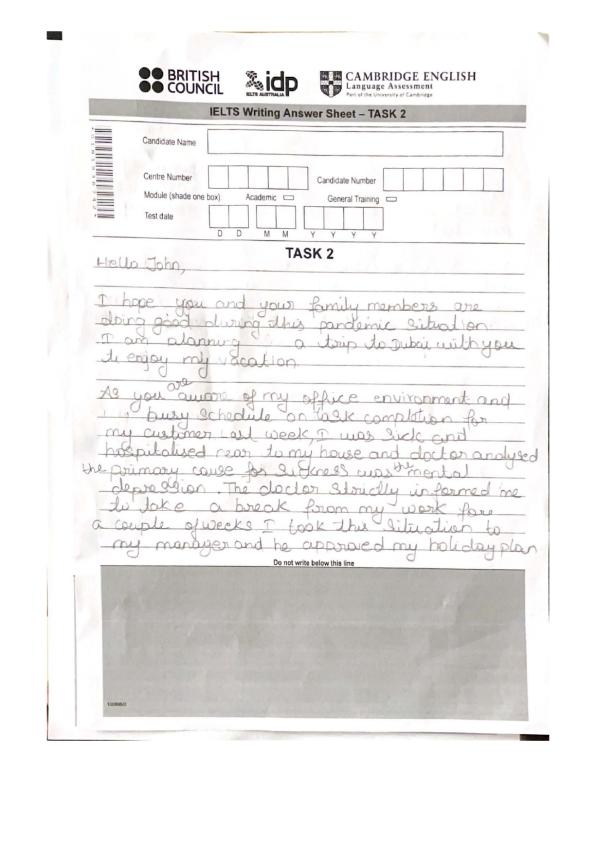 BRITISH COUNCIL
idp
IELTS AUSTRALIA
CAMBRIDGE ENGLISH
Language Assessment
Part of the University of Cambridge
IELTS Writing Answer Sheet – TASK 2
Candidate Name
Centre Number
Candidate Number
Module (shade one box)
Academic
General Training
Test date
D D M M Y Y Y Y
TASK 2
Hello John,
I hope you and your family members are
doing good during this pandemic situation.
I am planning a trip to Dubai with you
to enjoy my vacation
As you are aware of my office environment and
busy schedule on task completion for
my customer. Last week, I was sick and
hospitalised near to my house and doctor analysed
the primary cause for sickness was the mental
depression. The doctor strictly informed me
to take a break from my work for
a couple of weeks I took this situation to
my manager and he approved my holiday plan
Do not write below this line